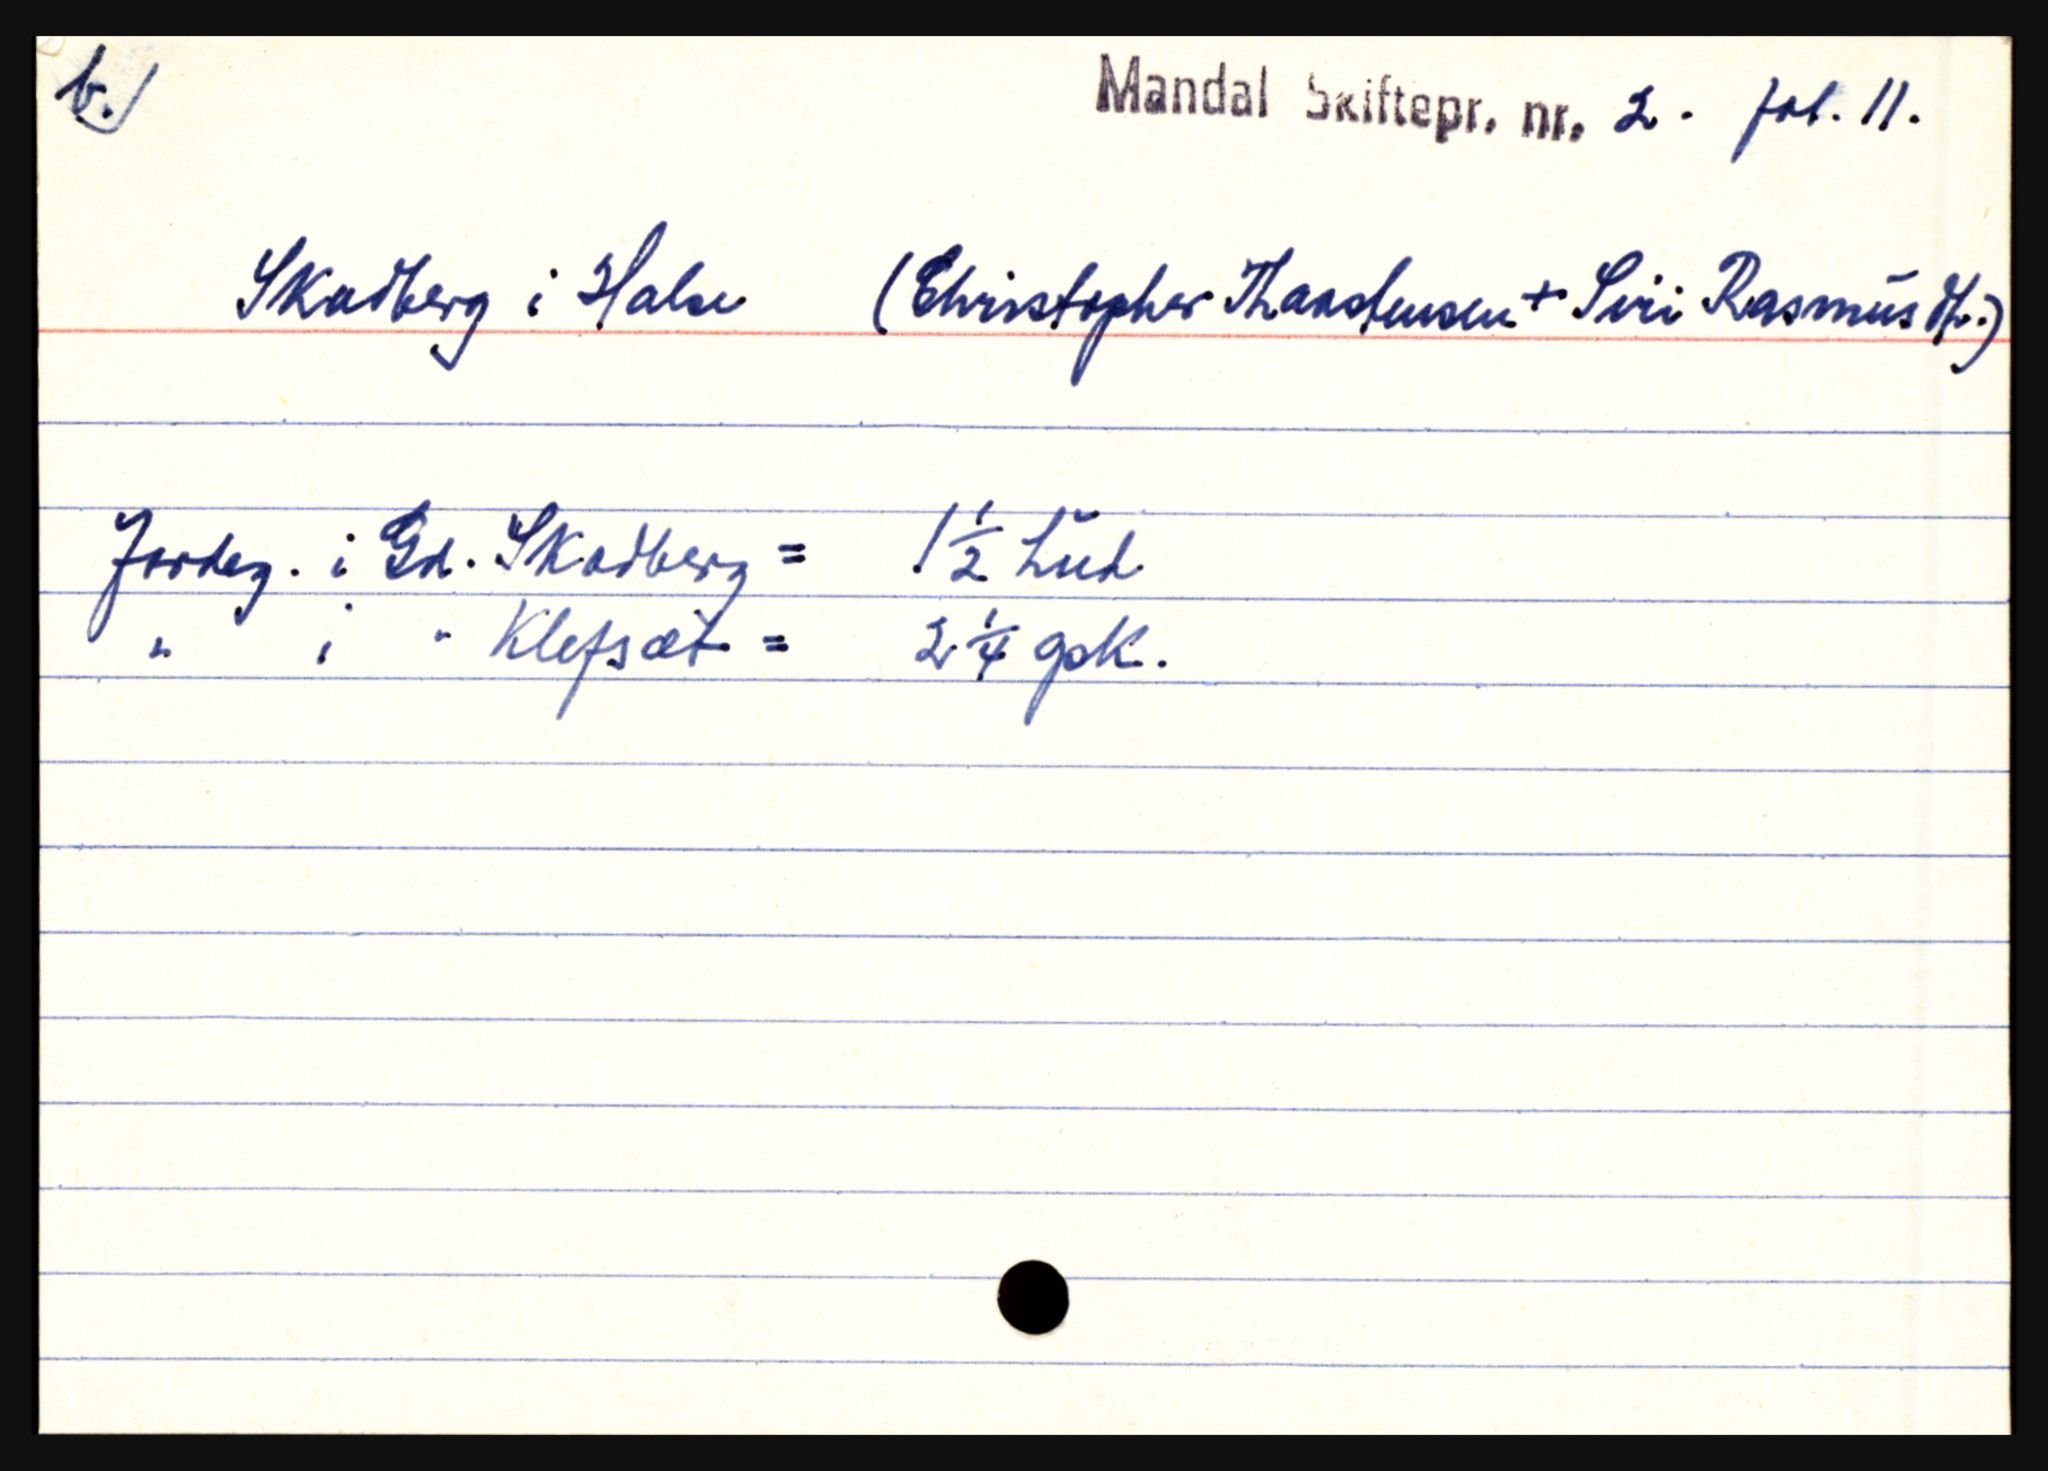 b.)
Mandal Skiftepr. nr. 2. fol. 11.
Skadberg i Halse (Christopher Thaastensen + Siri Rasmusdtr.)
Jordeg. i Gd. Skadberg = 1 1/2 hud
" i " Klefsæt = 2 1/4 gsk.